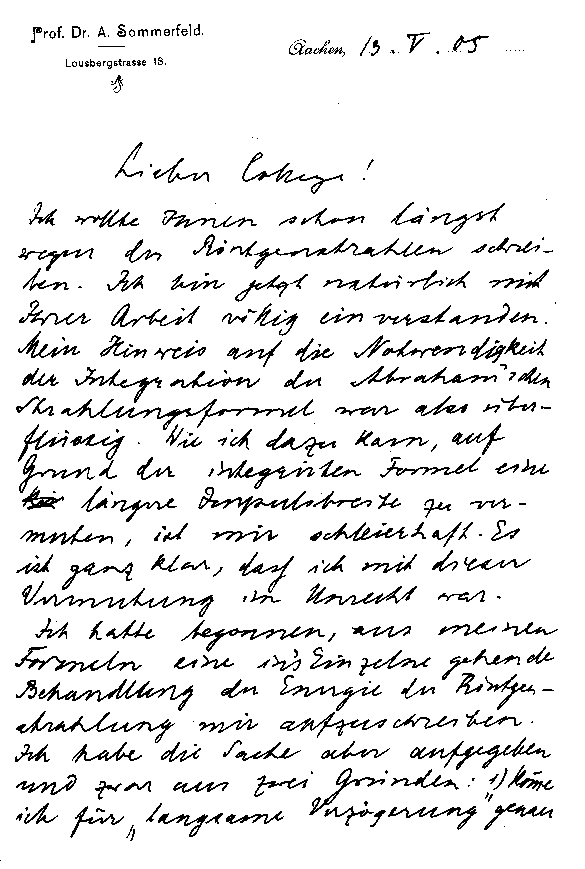 Prof. Dr. A. Sommerfeld.
Lousbergstrasse 18.
Aachen, 13. V. 05
Lieber College!
Ich wollte Ihnen schon längst
wegen der Röntgenstrahlen schrei-
ben. Ich bin jetzt natürlich mit
Ihrer Arbeit völlig einverstanden.
Mein Hinweis auf die Notwendigkeit
der Integration der Abraham'schen
Strahlungsformel war also über-
flüssig. Wie ich dazu kam, auf
Grund der integrirten Formel eine
längere Impulsbreite zu ver-
muten, ist mir schleierhaft. Es
ist ganz klar, dass ich mit dieser
Vermutung im Unrecht war.
Ich hatte begonnen, aus meinen
Formeln eine in's Einzelne gehende
Behandlung der Energie der Röntgen-
strahlung mir aufzuschreiben.
Ich habe die Sache aber aufgegeben
und zwar aus zwei Gründen: 1) käme
ich für „langsame Verzögerung" genau